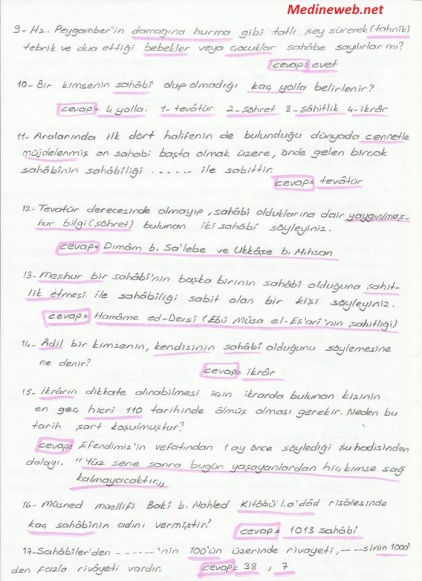 Medineweb.net
9- Hz. Peygamber'in damağına hurma gibi tatlı şey sürerek (tahnik)
tebrik ve dua ettiği bebekler veya çocuklar sahâbe sayılırlar mı?
cevap= evet
10- Bir kimsenin sahâbî olup olmadığı kaç yolla belirlenir?
cevap= 4 yolla. 1- tevâtür 2- şöhret 3- şâhitlik 4- ikrâr
11- Aralarında ilk dört halifenin de bulunduğu dünyada cennetle
müjdelenmiş on sahabi başta olmak üzere, önde gelen birçok
sahâbînin sahâbîliği ...... ile sabittir.
cevap= tevâtür
12- Tevatür derecesinde olmayıp, sahâbî olduklarına dair yaygınlmeş-
hur bilgi (şöhret) bulunan iki sahâbi söyleyiniz.
cevap= Dımâm b. Sa'lebe ve Ukkâşe b. Mihsan
13- Meşhur bir sahâbi'nin başka birinin sahâbî olduğuna şahit-
lik etmesi ile sahâbiliği sabit olan bir kişi söyleyiniz.
cevap= Hamâme ed-Devsî (Ebû Mûsa el-Eş'arî'nin şahitliği)
14- Âdil bir kimsenin, kendisinin sahâbî olduğunu söylemesine
ne denir?
cevap= ikrâr
15- İkrârın dikkate alınabilmesi için ikrarda bulunan kişinin
en geç hicri 110 tarihinde ölmüş olması gerekir. Neden bu
tarih şart koşulmuştur?
cevap= Efendimiz'in vefatından 1 ay önce söylediği şu hadisinden
dolayı. "Yüz sene sonra bugün yaşayanlardan hiç kimse sağ
kalmayacaktır."
16- Müsned müellifi Bakî b. Mahled Kitâbü'l-a'dâd risâlesinde
kaç sahâbînin adını vermiştir?
cevap= 1013 sahâbî
17- Sahâbiler'den .......'nin 100'ün üzerinde rivayeti, ....sinin 1000'
den fazla rivâyeti vardır. cevap= 38, 7